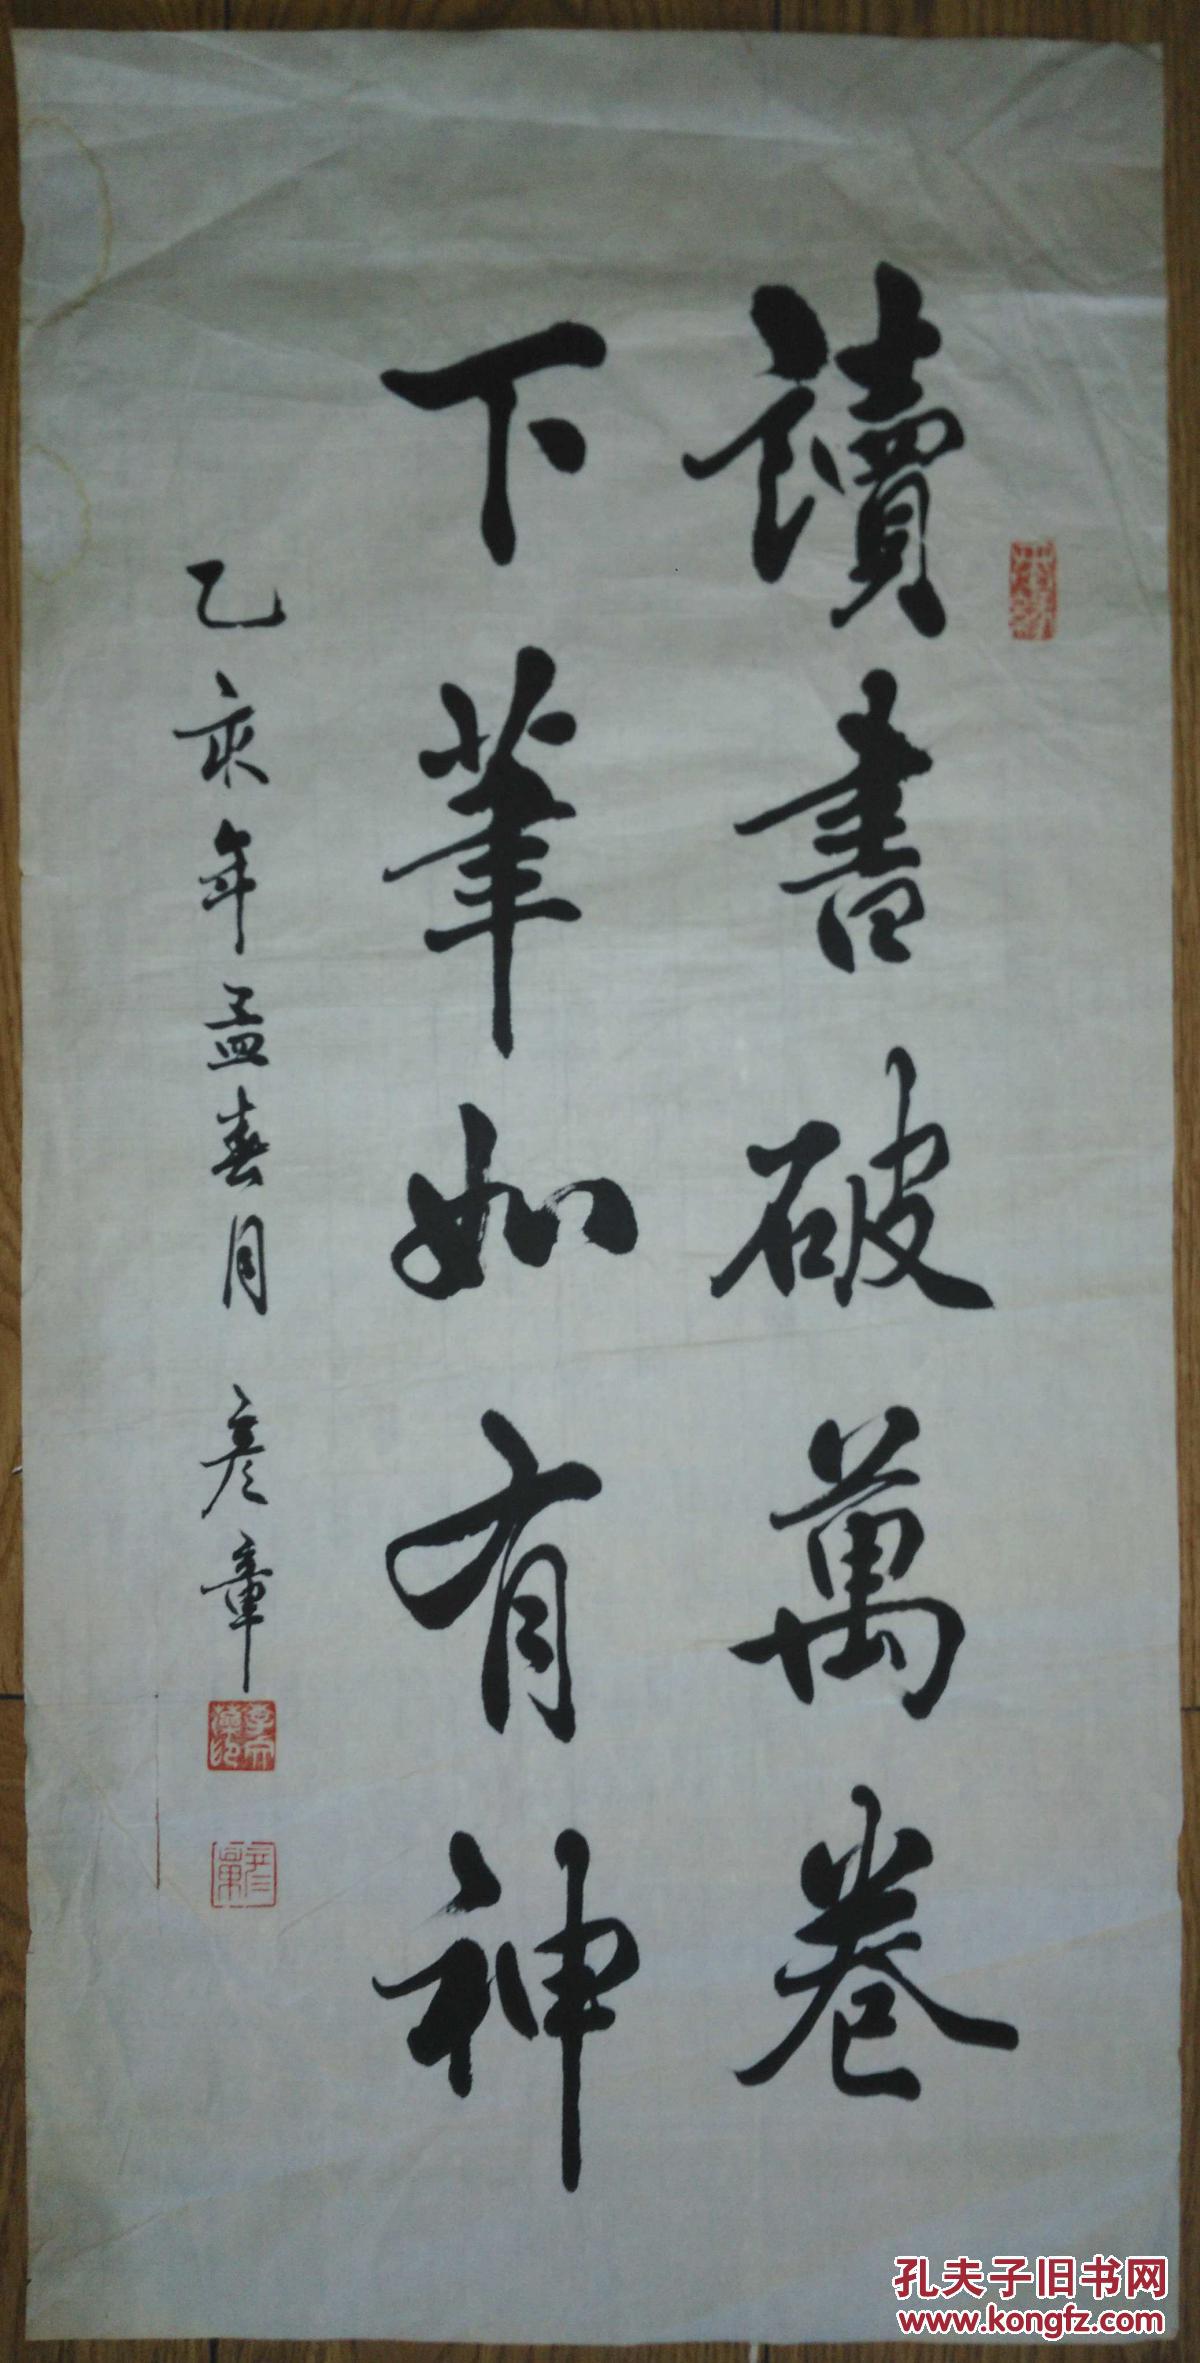 讀書破萬卷
下筆如有神
乙亥年孟春月 彦章
孔夫子旧书网
www.kongfz.com